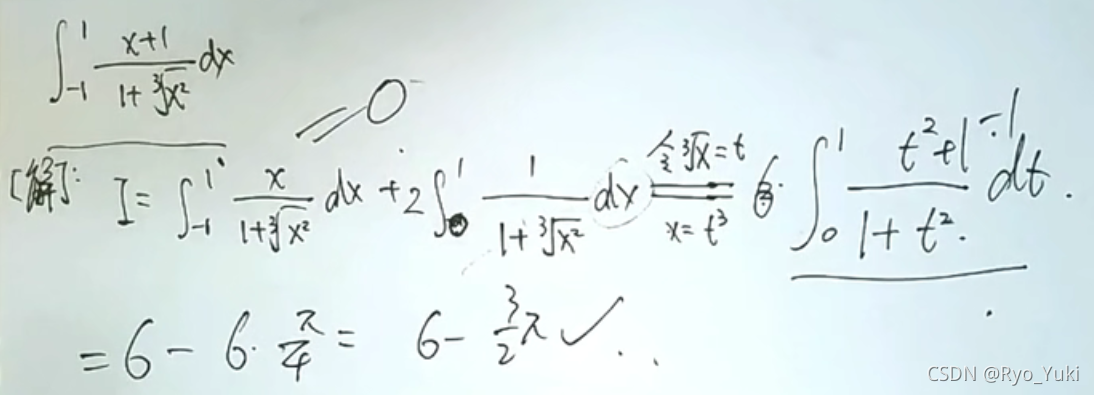 ∫₋₁¹ (x+1)/(1+∛x²) dx
[解]: I = ∫₋₁¹ x/(1+∛x²) dx + 2∫₀¹ 1/(1+∛x²) dx ══ 令∛x=t x=t³ 6·∫₀¹ (t²+1-1)/(1+t²) dt.
=0
= 6 - 6·π/4 = 6 - 3/2 π ✓..
CSDN @Ryo_Yuki